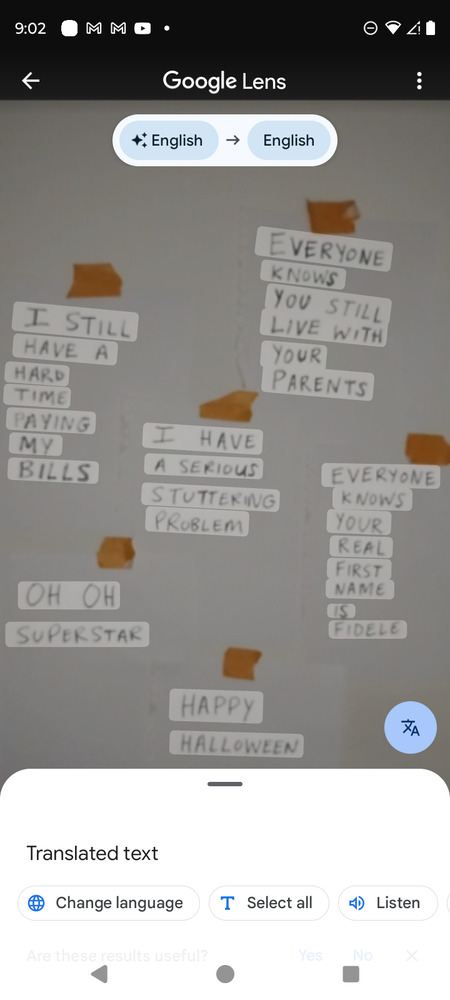 9:02
Google Lens
English → English
EVERYONE
KNOWS
YOU STILL
LIVE WITH
YOUR
PARENTS
I STILL
HAVE A
HARD
TIME
PAYING
MY
BILLS
I HAVE
A SERIOUS
STUTTERING
PROBLEM
EVERYONE
KNOWS
YOUR
REAL
FIRST
NAME
IS
FIDELE
OH OH
SUPERSTAR
HAPPY
HALLOWEEN
Translated text
Change language
Select all
Listen
Are these results useful? Yes No